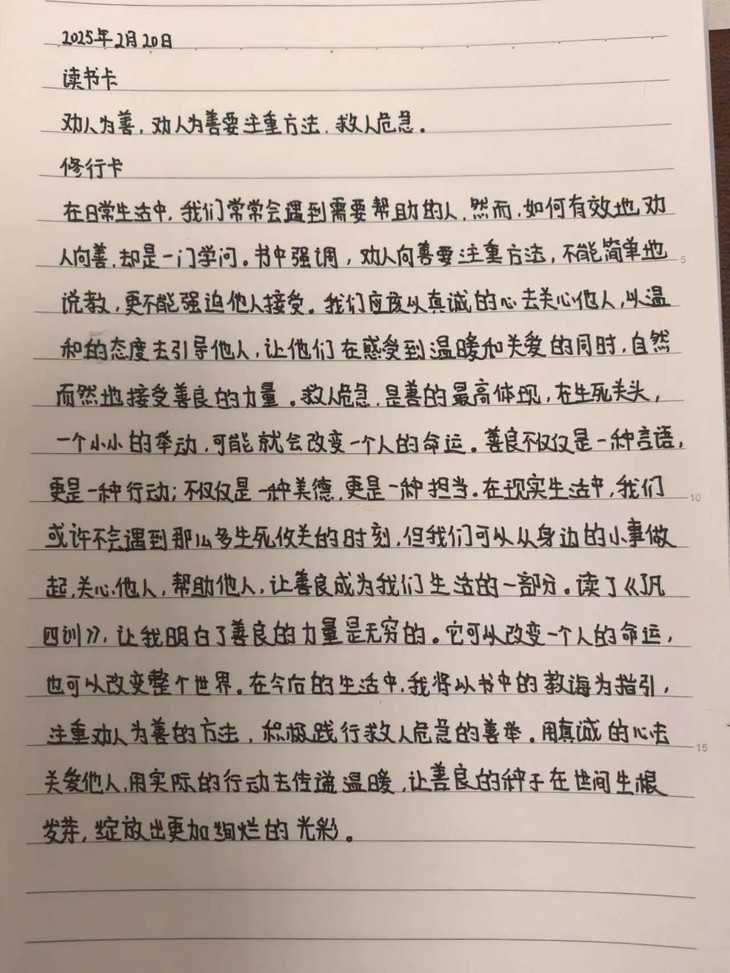 2025年2月20日
读书卡
劝人为善,劝人为善要注重方法,救人危急。
修行卡
在日常生活中,我们常常会遇到需要帮助的人,然而,如何有效地劝
人向善,却是一门学问。书中强调,劝人向善要注重方法,不能简单地 5
说教,更不能强迫他人接受。我们应该以真诚的心去关心他人,以温
和的态度去引导他人,让他们在感受到温暖和关爱的同时,自然
而然地接受善良的力量。救人危急,是善的最高体现,在生死关头,
一个小小的举动,可能就会改变一个人的命运。善良不仅仅是一种言语,
更是一种行动;不仅仅是一种美德,更是一种担当。在现实生活中,我们 10
或许不会遇到那么多生死攸关的时刻,但我们可以从身边的小事做
起,关心他人,帮助他人,让善良成为我们生活的一部分。读了《了凡
四训》,让我明白了善良的力量是无穷的。它可以改变一个人的命运,
也可以改变整个世界。在今后的生活中,我将以书中的教诲为指引,
注重劝人为善的方法,积极践行救人危急的善举。用真诚的心去 15
关爱他人,用实际的行动去传递温暖,让善良的种子在世间生根
发芽,绽放出更加绚烂的光彩。